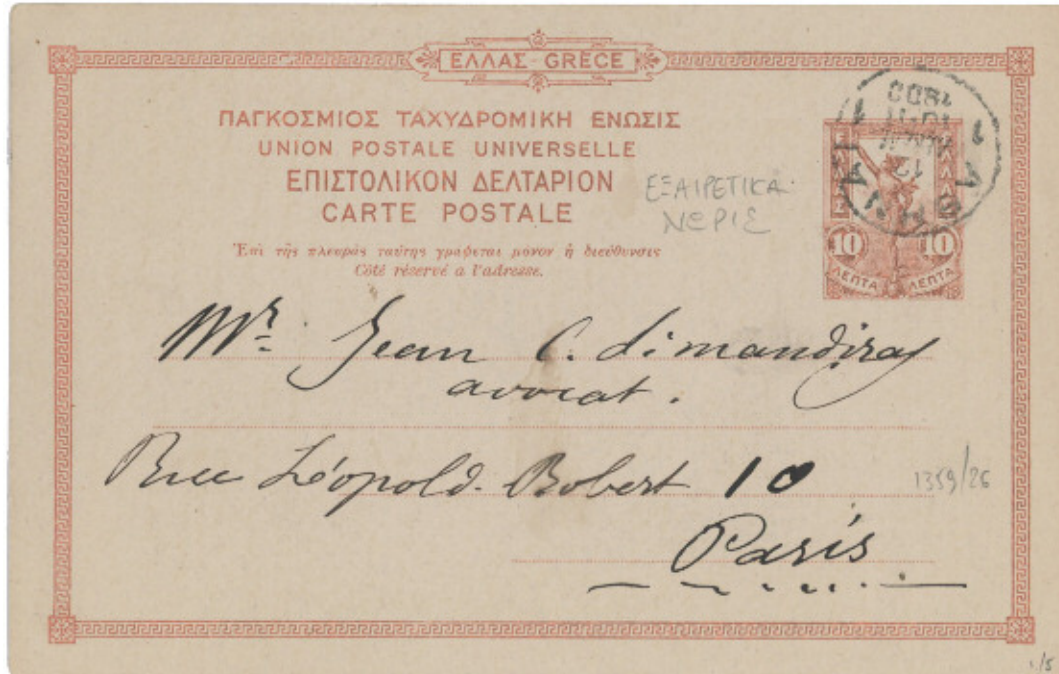 ΕΛΛΑΣ-GRÈCE
ΠΑΓΚΟΣΜΙΟΣ ΤΑΧΥΔΡΟΜΙΚΗ ΕΝΩΣΙΣ
UNION POSTALE UNIVERSELLE
ΕΠΙΣΤΟΛΙΚΟΝ ΔΕΛΤΑΡΙΟΝ
CARTE POSTALE
Ἐπὶ τῆς πλευρᾶς ταύτης γράφεται μόνον ἡ διεύθυνσις
Côté réservé a l'adresse.
ΕΞΑΙΡΕΤΙΚΑ
ΕΛΛΑΣ
10 10
ΛΕΠΤΑ ΛΕΠΤΑ
Mr. Jean C. Limandiras
avocat.
Rue Léopold. Bobert 10
1359/26
Paris
1/5